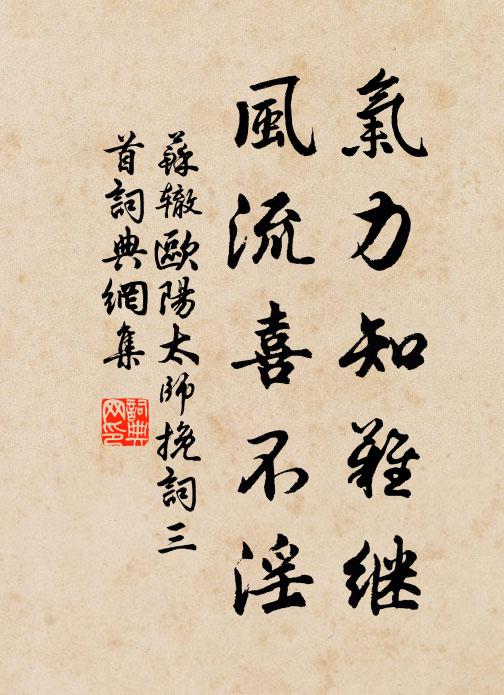 氣力知難继
風流喜不淫
蘇辙歐陽太师挽詞三
首詞典網集
詞典
网印